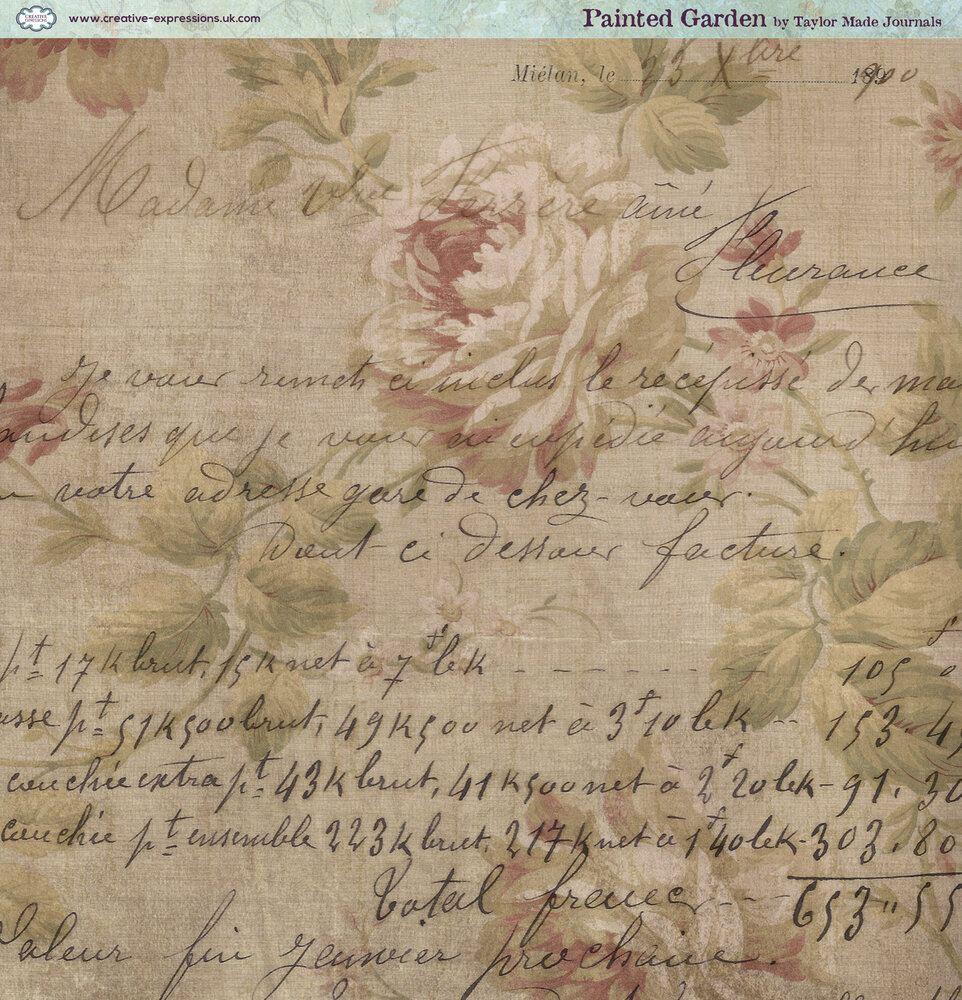 CREATIVE EXPRESSIONS
www.creative-expressions.uk.com
Painted Garden by Taylor Made Journals
Miélan, le 23 Xbre 1900
Madame Vve Ferrère aîné
Fleurance
Je vous remets ci inclus le récépissé de ma
andises que je vous ai expédié aujourd'hui
votre adresse gare de chez-vous.
Dont ci dessous facture.
pt 17K brut, 15K net à 7f le K ------- 105
asse pt 51K500 brut, 49K500 net à 3f10 le K -- 153.45
couchée extra pt 43K brut, 41K500 net à 2f20 le K - 91.30
couchée pt ensemble 223K brut, 217K net à 1f40 le K - 303.80
Total francs --- 653"55
Valeur fin janvier prochain.